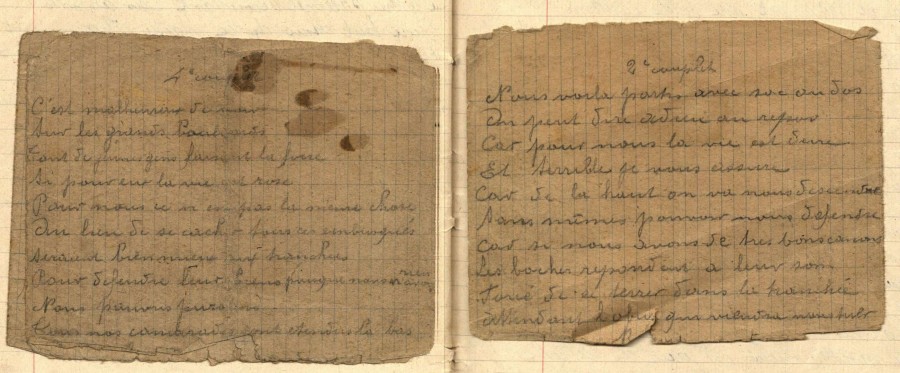 4e couplet
C'est malheureux de voir
Sur les grands Boulevards
Tant de gens faisant la foire
Si pour eux la vie est rose
Pour nous ce n'est pas la même chose
Au lieu de se cacher tous ces embusqués
seraient bien mieux aux tranchées
Pour défendre leur biens puisque nous avons rien
Nous
Tous nos camarades sont étendus la bas
2e couplet
Nous voila partis avec sac au dos
On peut dire adieu au repos
Car pour nous la vie est dure
Et terrible je vous assure
Car de la haut on va nous descendre
Sans mêmes pouvoir nous défendre
Car si nous avons de tres bons canons
Les boches repondent a leur son
Forcé de se terrer dans la tranchée
Attendant l'obus qui viendra nous tuer